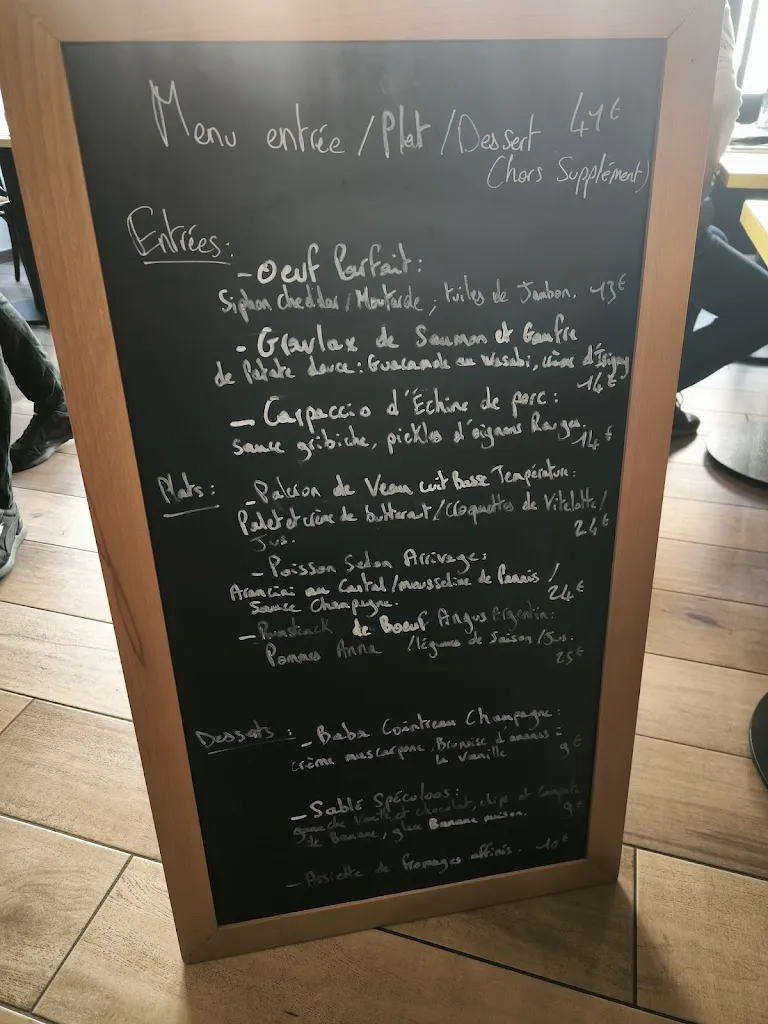 Menu entrée / Plat / Dessert 41€
(hors Supplément)
Entrées:
- Oeuf Parfait:
Siphon cheddar / Moutarde, tuiles de Jambon. 13€
- Gravlax de Saumon et Gaufre
de Patate douce: Guacamole au Wasabi, crème d'Isigny
14€
- Carpaccio d'Échine de porc:
sauce gribiche, pickles d'oignons Rouges. 14€
Plats:
- Paleron de Veau cuit Basse Température:
Palet et crème de butternut / Croquettes de Vitelotte /
Jus. 24€
- Poisson Selon Arrivage:
Arancini au Cantal / mousseline de Panais /
Sauce Champagne. 24€
- Rumsteack de Boeuf Angus Argentin:
Pommes Anna / légumes de Saison / Jus.
25€
Desserts:
- Baba Cointreau Champagne:
crème mascarpone, Brunoise d'ananas à
la Vanille 9€
- Sablé Spéculoos:
ganache Vanille et chocolat, chips et compotée
de Banane, glace Banane maison. 9€
- Assiette de fromages affinés. 10€